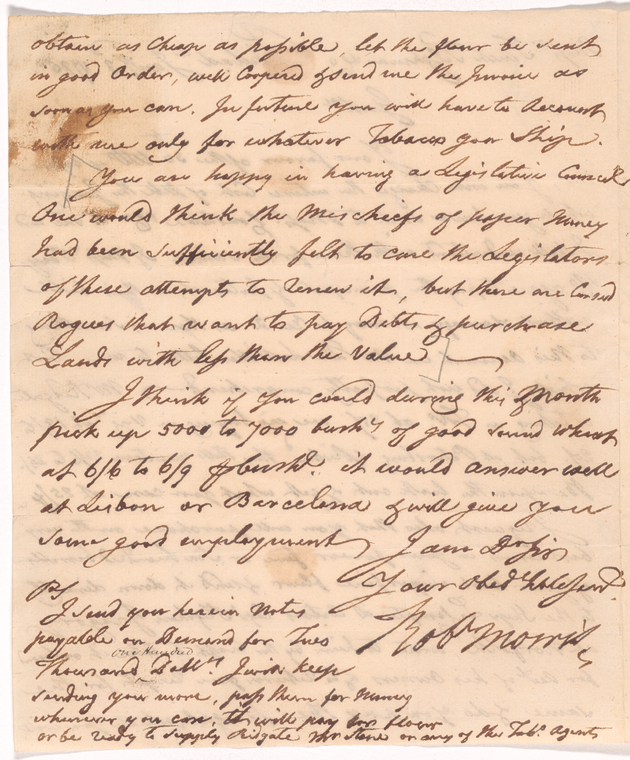 obtain as Cheap as possible, let the flour be sent
in good Order, well Coopered & send me the Invoice as
soon as you can. In future you will have to Account
with me only for whatever Tobacco you Ship.
You are happy in having a Legislative Council
One would think the Mischiefs of paper Money
had been sufficiently felt to cure the Legislators
of these attempts to renew it, but there are Cursed
Rogues that want to pay Debts & purchase
Lands with less than the Value
I think if you could during this Month
pick up 5000 to 7000 bush.s of good sound wheat
at 6/6 to 6/9 ⅌ bush.l it would answer well
at Lisbon or Barcelona & will give you
some good employment
I am D Sir
Your Obed.t hble Serv.t
Rob Morris
PS
I send you herein Notes
payable on Demand for Two
Thousand one Hundred Doll.rs I will keep
sending you more, pass them for Money
whenever you can, will pay for flour
or be ready to supply Ridgate Mr Stone or any of the Tob.o Agents